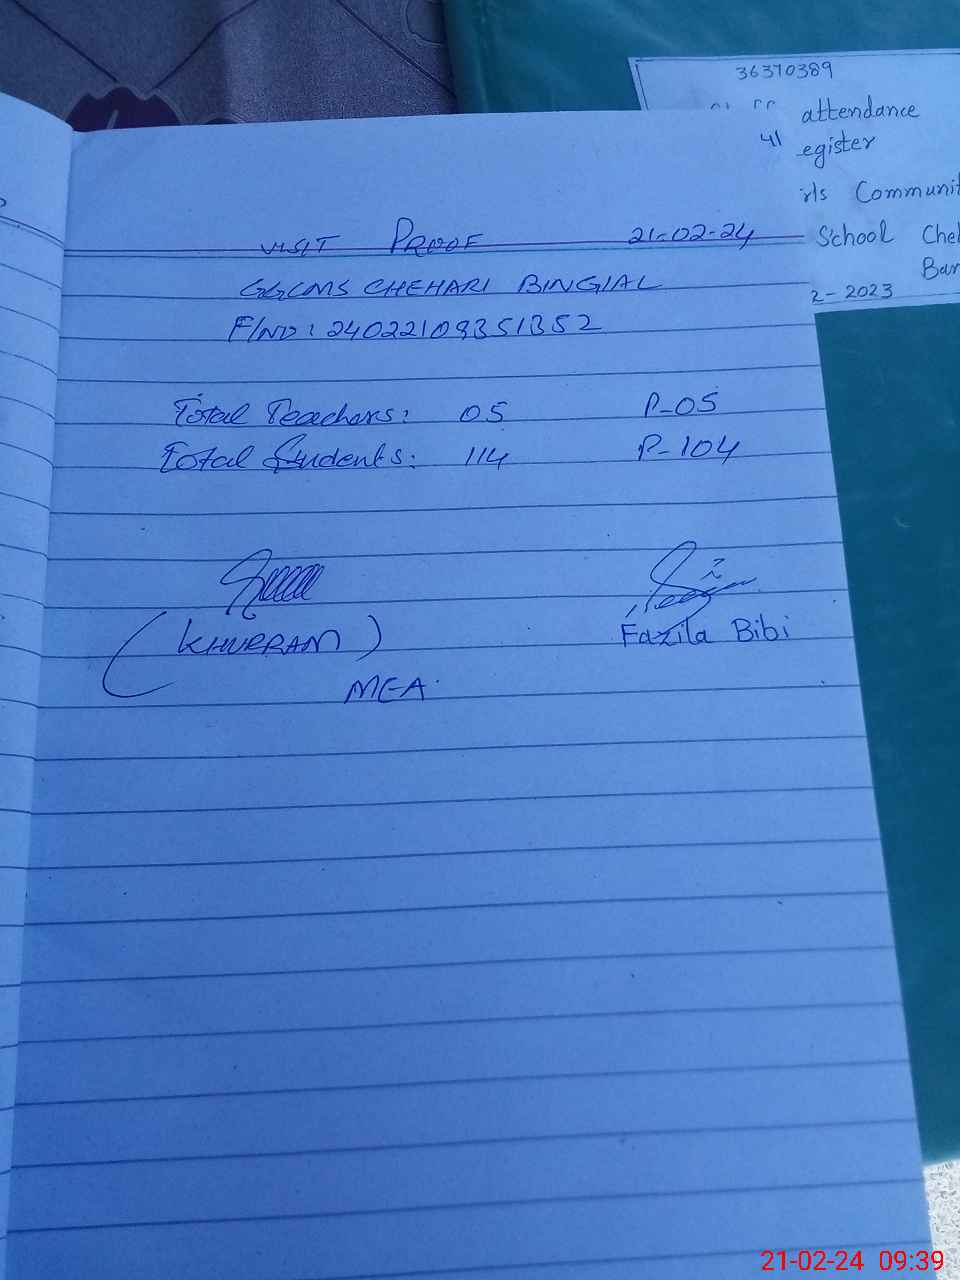 36370389
attendance
egister
rls Communit
School Che
Ban
2-2023
VISIT PROOF 21-02-24
GGCMS CHEHARI BINGIAL
F/NO: 24022109351352
Total Teachers: 05 P-05
Total Students: 114 P-104
(KHURRAM)
Fazila Bibi
MEA
21-02-24 09:39